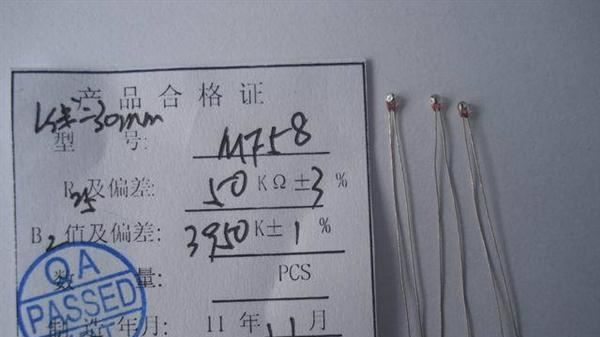 产品合格证
长=30mm
型 号: MF58
R25及偏差: 50 KΩ ±3 %
B2值及偏差: 3950 K± 1 %
数 量: PCS
制造年月: 11 年 11 月
QA
PASSED